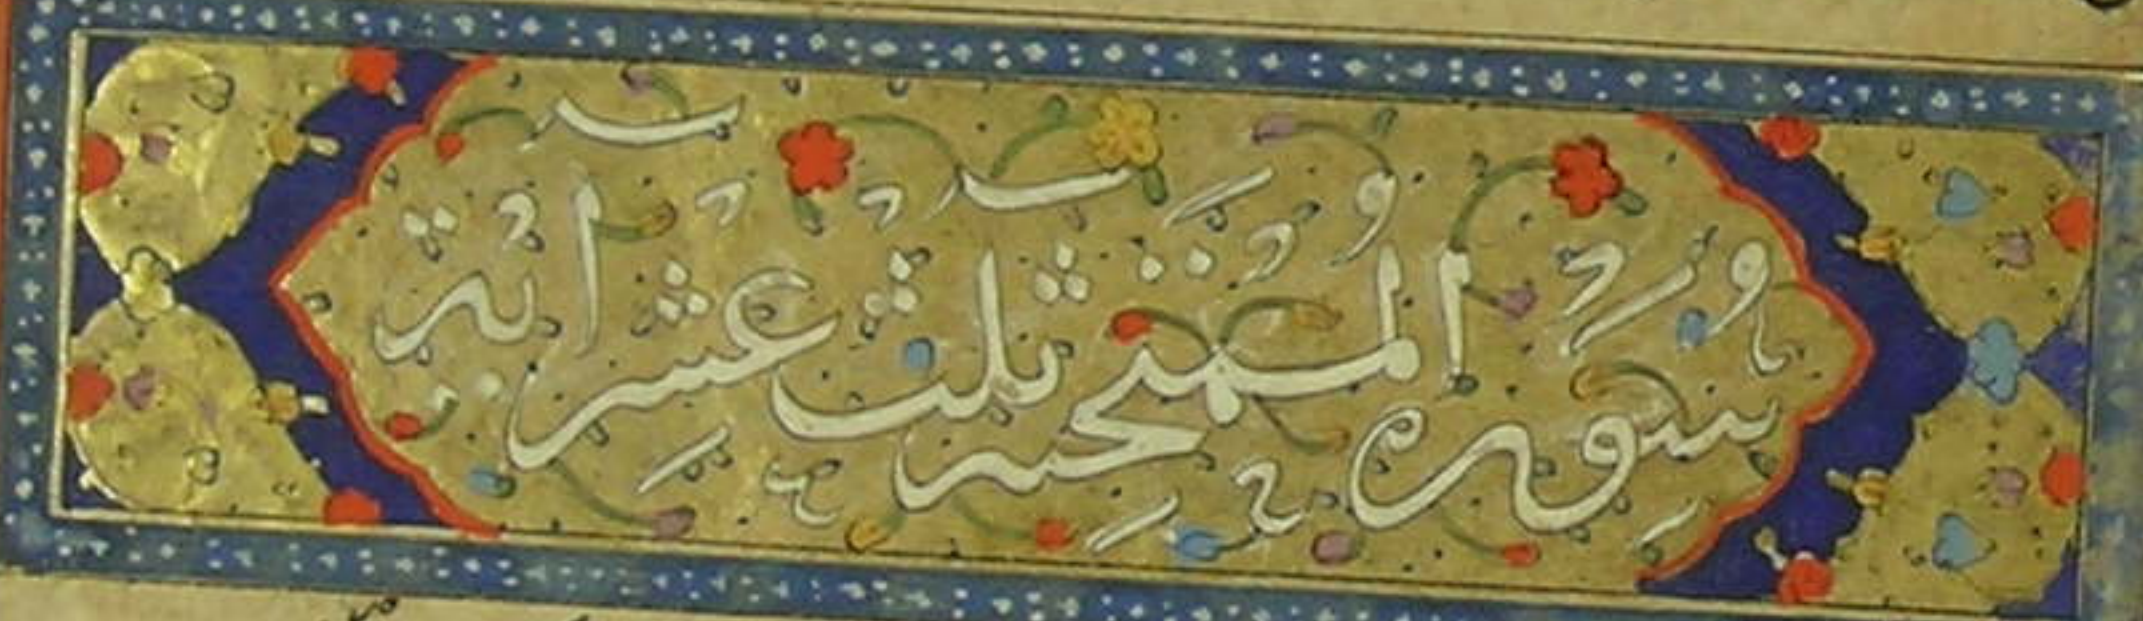 سورة الممتحنة ثلث عشر اية